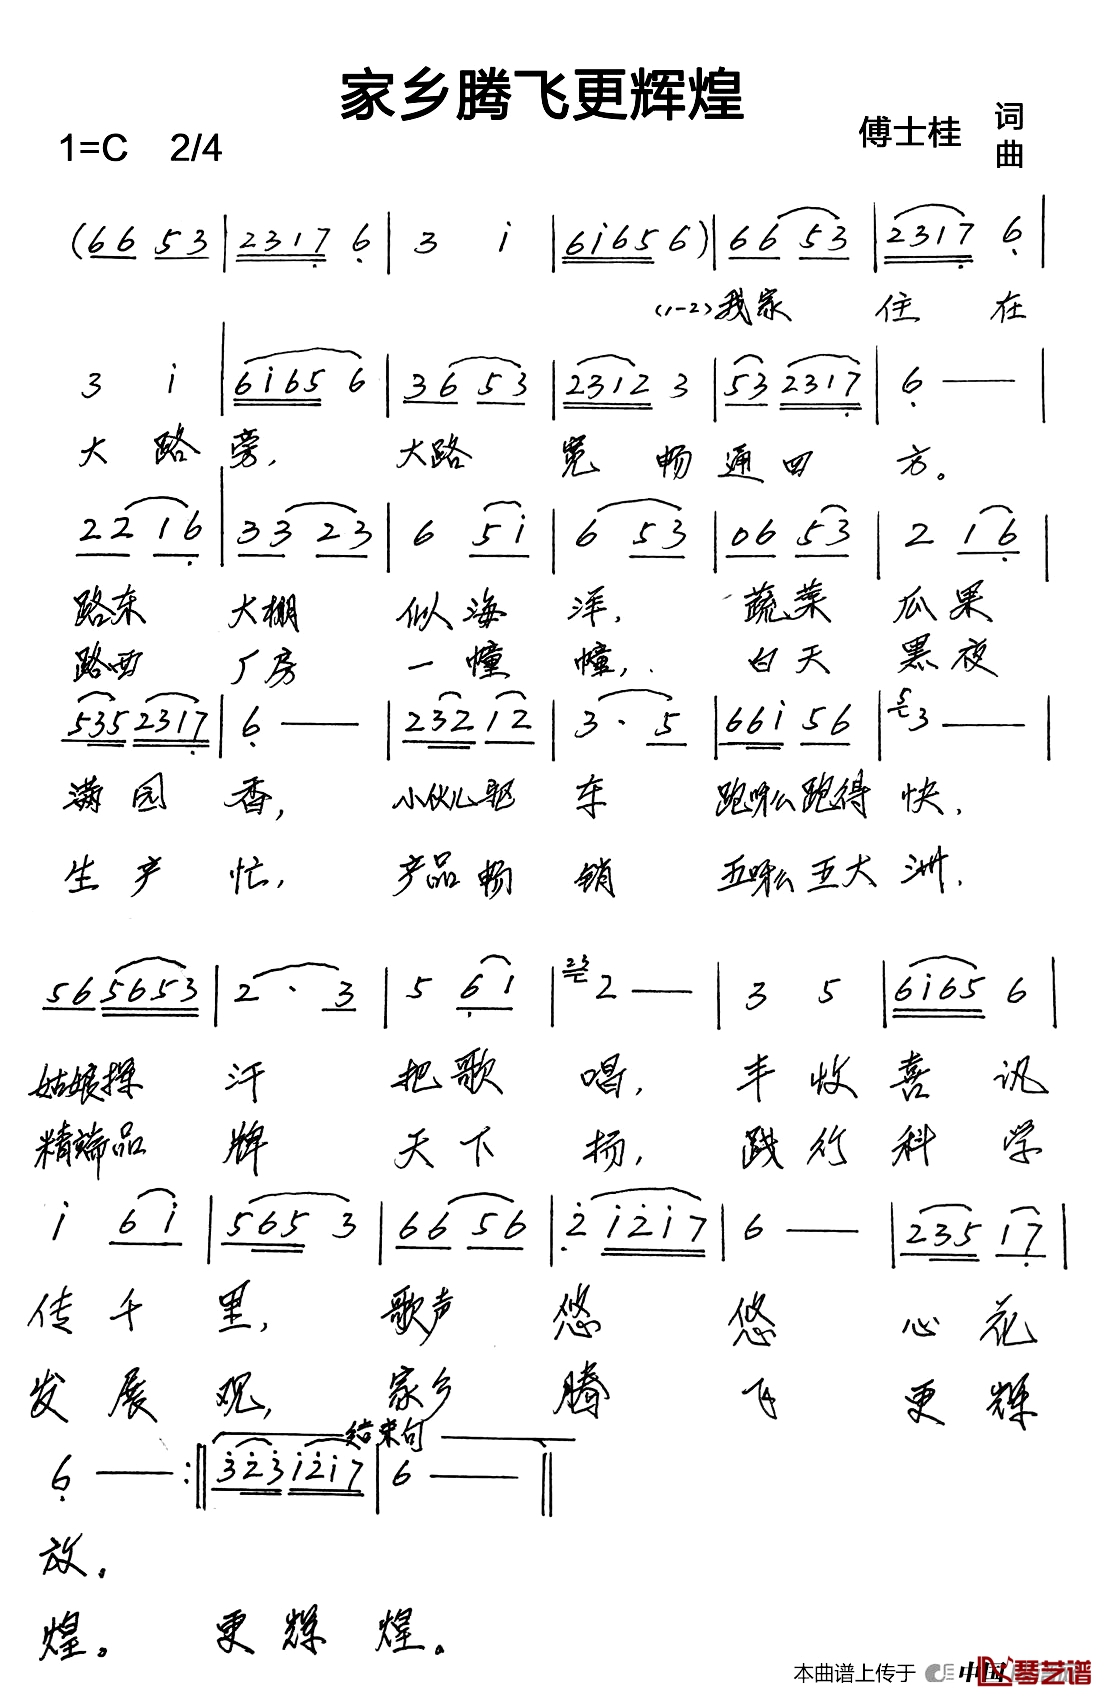 家乡腾飞更辉煌
1=C 2/4
傅士桂 词
曲
(66 53 | 2317 6 | 3 i | 6i65 6) | 66 53 | 2317 6 |
(1-2)我家 住 在
3 i | 6i65 6 | 36 53 | 2312 3 | 53 2317 | 6 — |
大 路 旁, 大路 宽 畅 通 四 方。
22 16 | 33 23 | 6 5i | 6 53 | 06 53 | 2 16 |
路东 大棚 似 海 洋, 蔬菜 瓜果
路西 厂房 一 幢 幢, 白天 黑夜
535 2317 | 6 — | 232 12 | 3 · 5 | 66i 56 | 5 3 — |
满 园 香, 小伙儿驱 车 跑呀么跑得 快,
生 产 忙, 产品畅 销 五呀么五大 洲,
56 5653 | 2 · 3 | 5 61 | 23 2 — | 3 5 | 6i65 6 |
姑娘 汗 把 歌 唱, 丰 收 喜 讯
精端品 牌 天 下 扬, 践 行 科 学
i 6i | 565 3 | 66 56 | 2 i2i7 | 6 — | 235 17 |
传 千 里, 歌声 悠 悠 心 花
发 展 观, 家乡 腾 飞 更 辉
结束句
6 — :‖ 323 i2i7 | 6 — ‖
放。
煌。 更 辉 煌。
本曲谱上传于 中国 琴艺谱